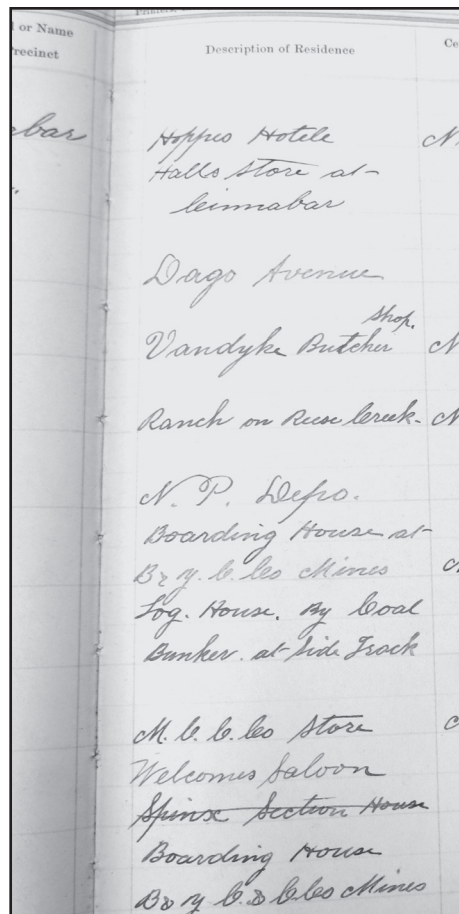 or Name
Precinct
Description of Residence
Ce
Hoppes Hotele
Halls Store at
Cinnabar
Dago Avenue
Shop.
Vandyke Butcher
Ranch on Reese Creek.
N. P. Depo.
Boarding House at
B & Y. C. Co Mines
Log. House. By Coal
Bunker. at Side Track
M. C. C. Co Store
Welcomes Saloon
Spinx Section House
Boarding House
B & Y C & C Co Mines